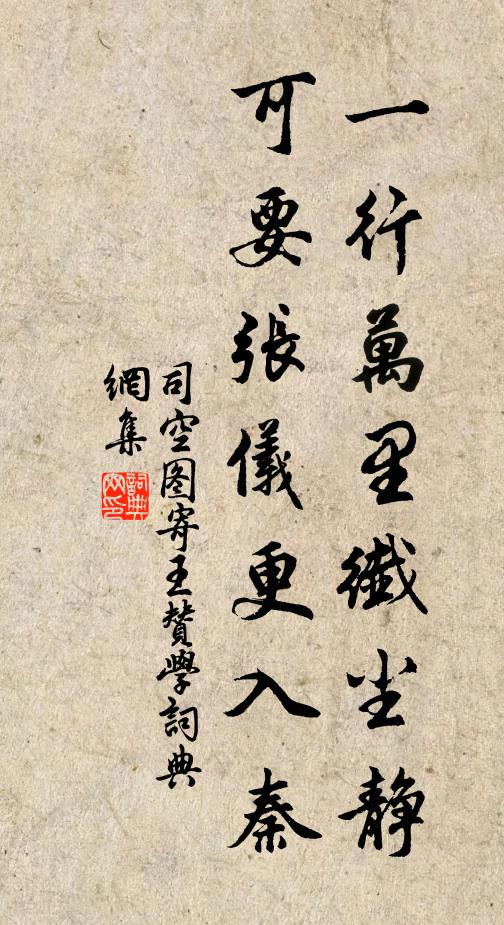 一行萬里纖尘静
可要張儀更入秦
司空图寄王贊學詞典
網集
詞典
网印